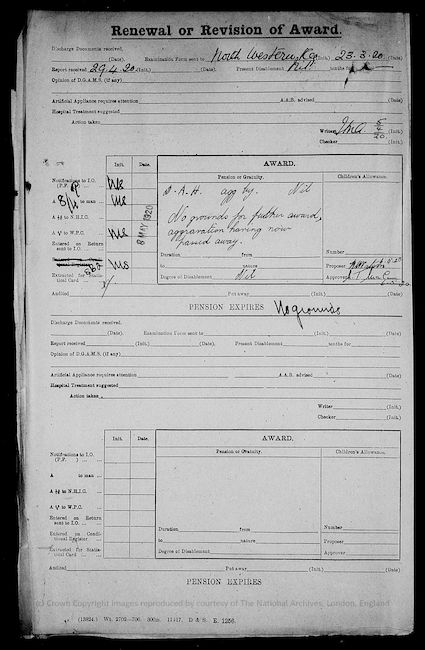 Renewal or Revision of Award.
Discharge Documents received, (Date) Examination Form sent to North Western Reg 23.3.20 (Date)
Report received 29.4.20 (Init.) (Date). Present Disablement Nil tenths for
Opinion of D.G.A.M.S. (if any)
Artificial Appliance requires attention A.A.S. advised (Date)
Hospital Treatment suggested (Date)
Action taken
Writer (Init.)
Checker (Init.)
Init. Date. AWARD.
Pension or Gratuity. Children's Allowance.
Notifications to I.O.
(P.F. ) ...
A to man ...
A to N.H.I.C.
A to W.P.C.
Entered on Return
sent to I.O. ...
562
Extracted for Statistical
Card ...
8 MAY 1920
D.A.H. agg by. Nil
No grounds for further award,
aggravation having now
passed away.
Duration from Number
to nature Proposer
Degree of Disablement Nil Approver
Audited Put away (Init.) (Date)
PENSION EXPIRES No grounds
Discharge Documents received, (Date) Examination Form sent to (Date)
Report received (Init.) (Date). Present Disablement tenths for
Opinion of D.G.A.M.S. (if any)
Artificial Appliance requires attention A.A.S. advised (Date)
Hospital Treatment suggested (Date)
Action taken
Writer (Init.)
Checker (Init.)
Init. Date. AWARD.
Pension or Gratuity. Children's Allowance.
Notifications to I.O.
(P.F. ) ...
A to man ...
A to N.H.I.C.
A to W.P.C.
Entered on Return
sent to I.O. ...
Entered on Conditional
Register ...
Extracted for Statistical
Card ...
Duration from Number
to nature Proposer
Degree of Disablement Approver
Audited Put away (Init.) (Date)
PENSION EXPIRES
(c) Crown Copyright Images reproduced by courtesy of The National Archives, London, England
(13824.) Wt. 2702-706. 300m. 11/17. D & S. E. 1256.